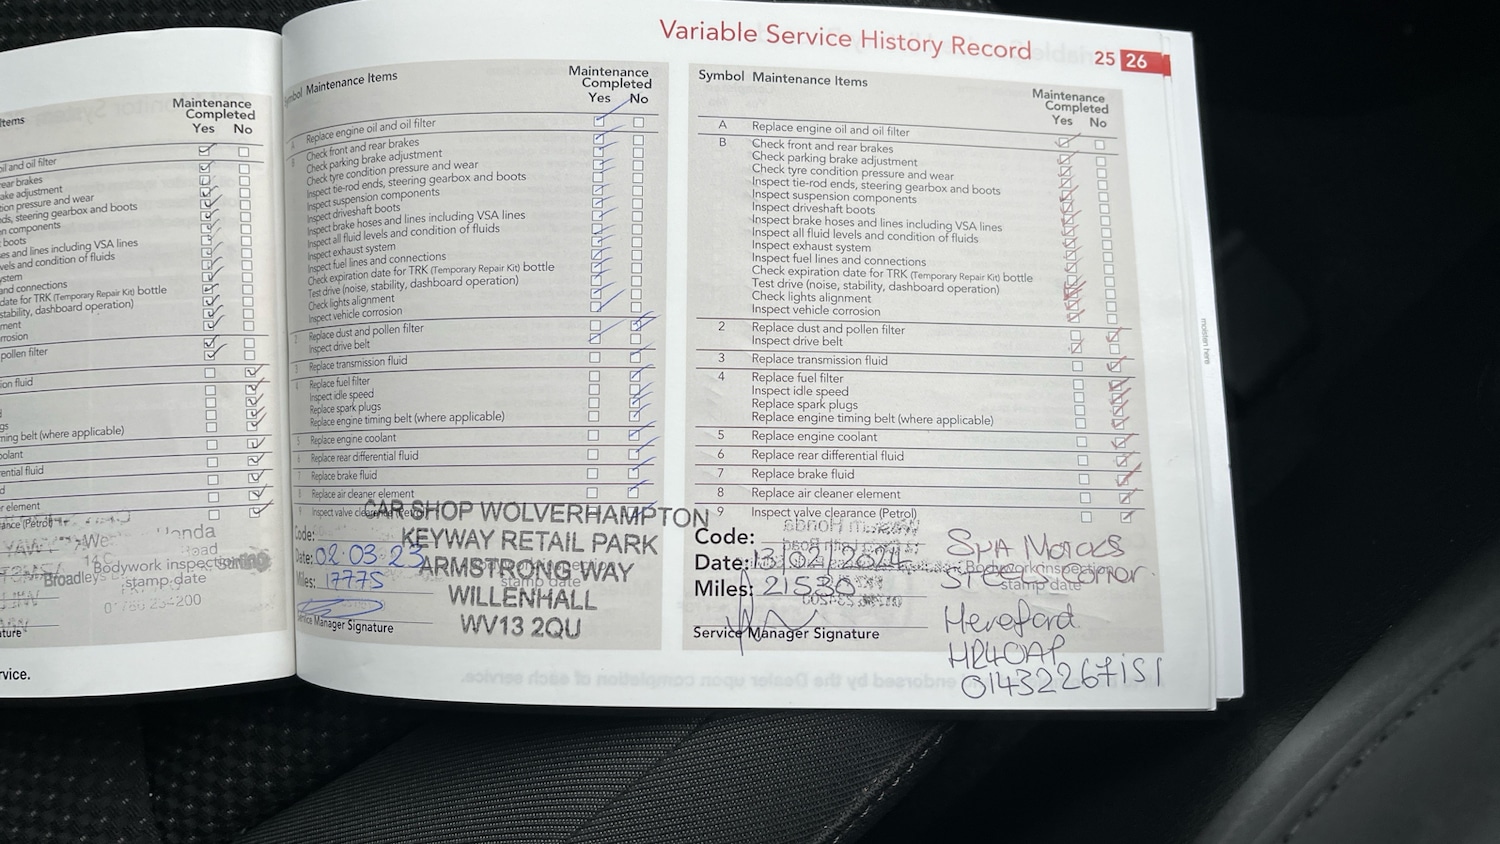 Variable Service History Record 25 26
Items
Maintenance
Completed
Yes No
oil and oil filter
rear brakes
ake adjustment
tion pressure and wear
ds, steering gearbox and boots
n components
boots
es and lines including VSA lines
vels and condition of fluids
ystem
and connections
date for TRK (Temporary Repair Kit) bottle
stability, dashboard operation)
ment
rrosion
pollen filter
ion fluid
d
gs
ming belt (where applicable)
olant
ential fluid
d
r element
ance (Petrol)
Honda
Road
Bodywork inspection
Broadleys
stamp date
ature
rvice.
Symbol Maintenance Items
Maintenance
Completed
Yes No
A Replace engine oil and oil filter
B Check front and rear brakes
Check parking brake adjustment
Check tyre condition pressure and wear
Inspect tie-rod ends, steering gearbox and boots
Inspect suspension components
Inspect driveshaft boots
Inspect brake hoses and lines including VSA lines
Inspect all fluid levels and condition of fluids
Inspect exhaust system
Inspect fuel lines and connections
Check expiration date for TRK (Temporary Repair Kit) bottle
Test drive (noise, stability, dashboard operation)
Check lights alignment
Inspect vehicle corrosion
2 Replace dust and pollen filter
Inspect drive belt
3 Replace transmission fluid
4 Replace fuel filter
Inspect idle speed
Replace spark plugs
Replace engine timing belt (where applicable)
5 Replace engine coolant
6 Replace rear differential fluid
7 Replace brake fluid
8 Replace air cleaner element
9 Inspect valve clearance (Petrol)
CAR SHOP WOLVERHAMPTON
KEYWAY RETAIL PARK
ARMSTRONG WAY
WILLENHALL
WV13 2QU
Code:
Date: 02·03·23
Miles: 17775
stamp date
Service Manager Signature
Symbol Maintenance Items
Maintenance
Completed
Yes No
A Replace engine oil and oil filter
B Check front and rear brakes
Check parking brake adjustment
Check tyre condition pressure and wear
Inspect tie-rod ends, steering gearbox and boots
Inspect suspension components
Inspect driveshaft boots
Inspect brake hoses and lines including VSA lines
Inspect all fluid levels and condition of fluids
Inspect exhaust system
Inspect fuel lines and connections
Check expiration date for TRK (Temporary Repair Kit) bottle
Test drive (noise, stability, dashboard operation)
Check lights alignment
Inspect vehicle corrosion
2 Replace dust and pollen filter
Inspect drive belt
3 Replace transmission fluid
4 Replace fuel filter
Inspect idle speed
Replace spark plugs
Replace engine timing belt (where applicable)
5 Replace engine coolant
6 Replace rear differential fluid
7 Replace brake fluid
8 Replace air cleaner element
9 Inspect valve clearance (Petrol)
Code:
Date: 13/02/2024
Miles: 21538
Service Manager Signature
Bodywork inspection
stamp date
Spa Motors
Steels Corner
Hereford
HR4 0AP
01432267151
endorsed by the Dealer upon completion of each service.
moisten here